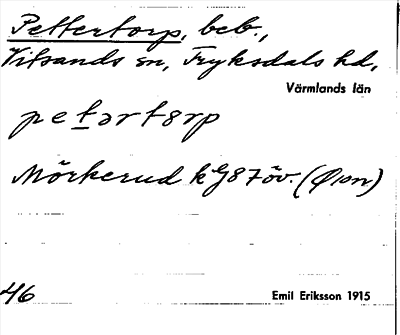 Pettertorp, beb.,
Vitsands sn, Fryksdals hd,
Värmlands län
petərtərp
Mörkerud kG87öv. (Øion)
46
Emil Eriksson 1915